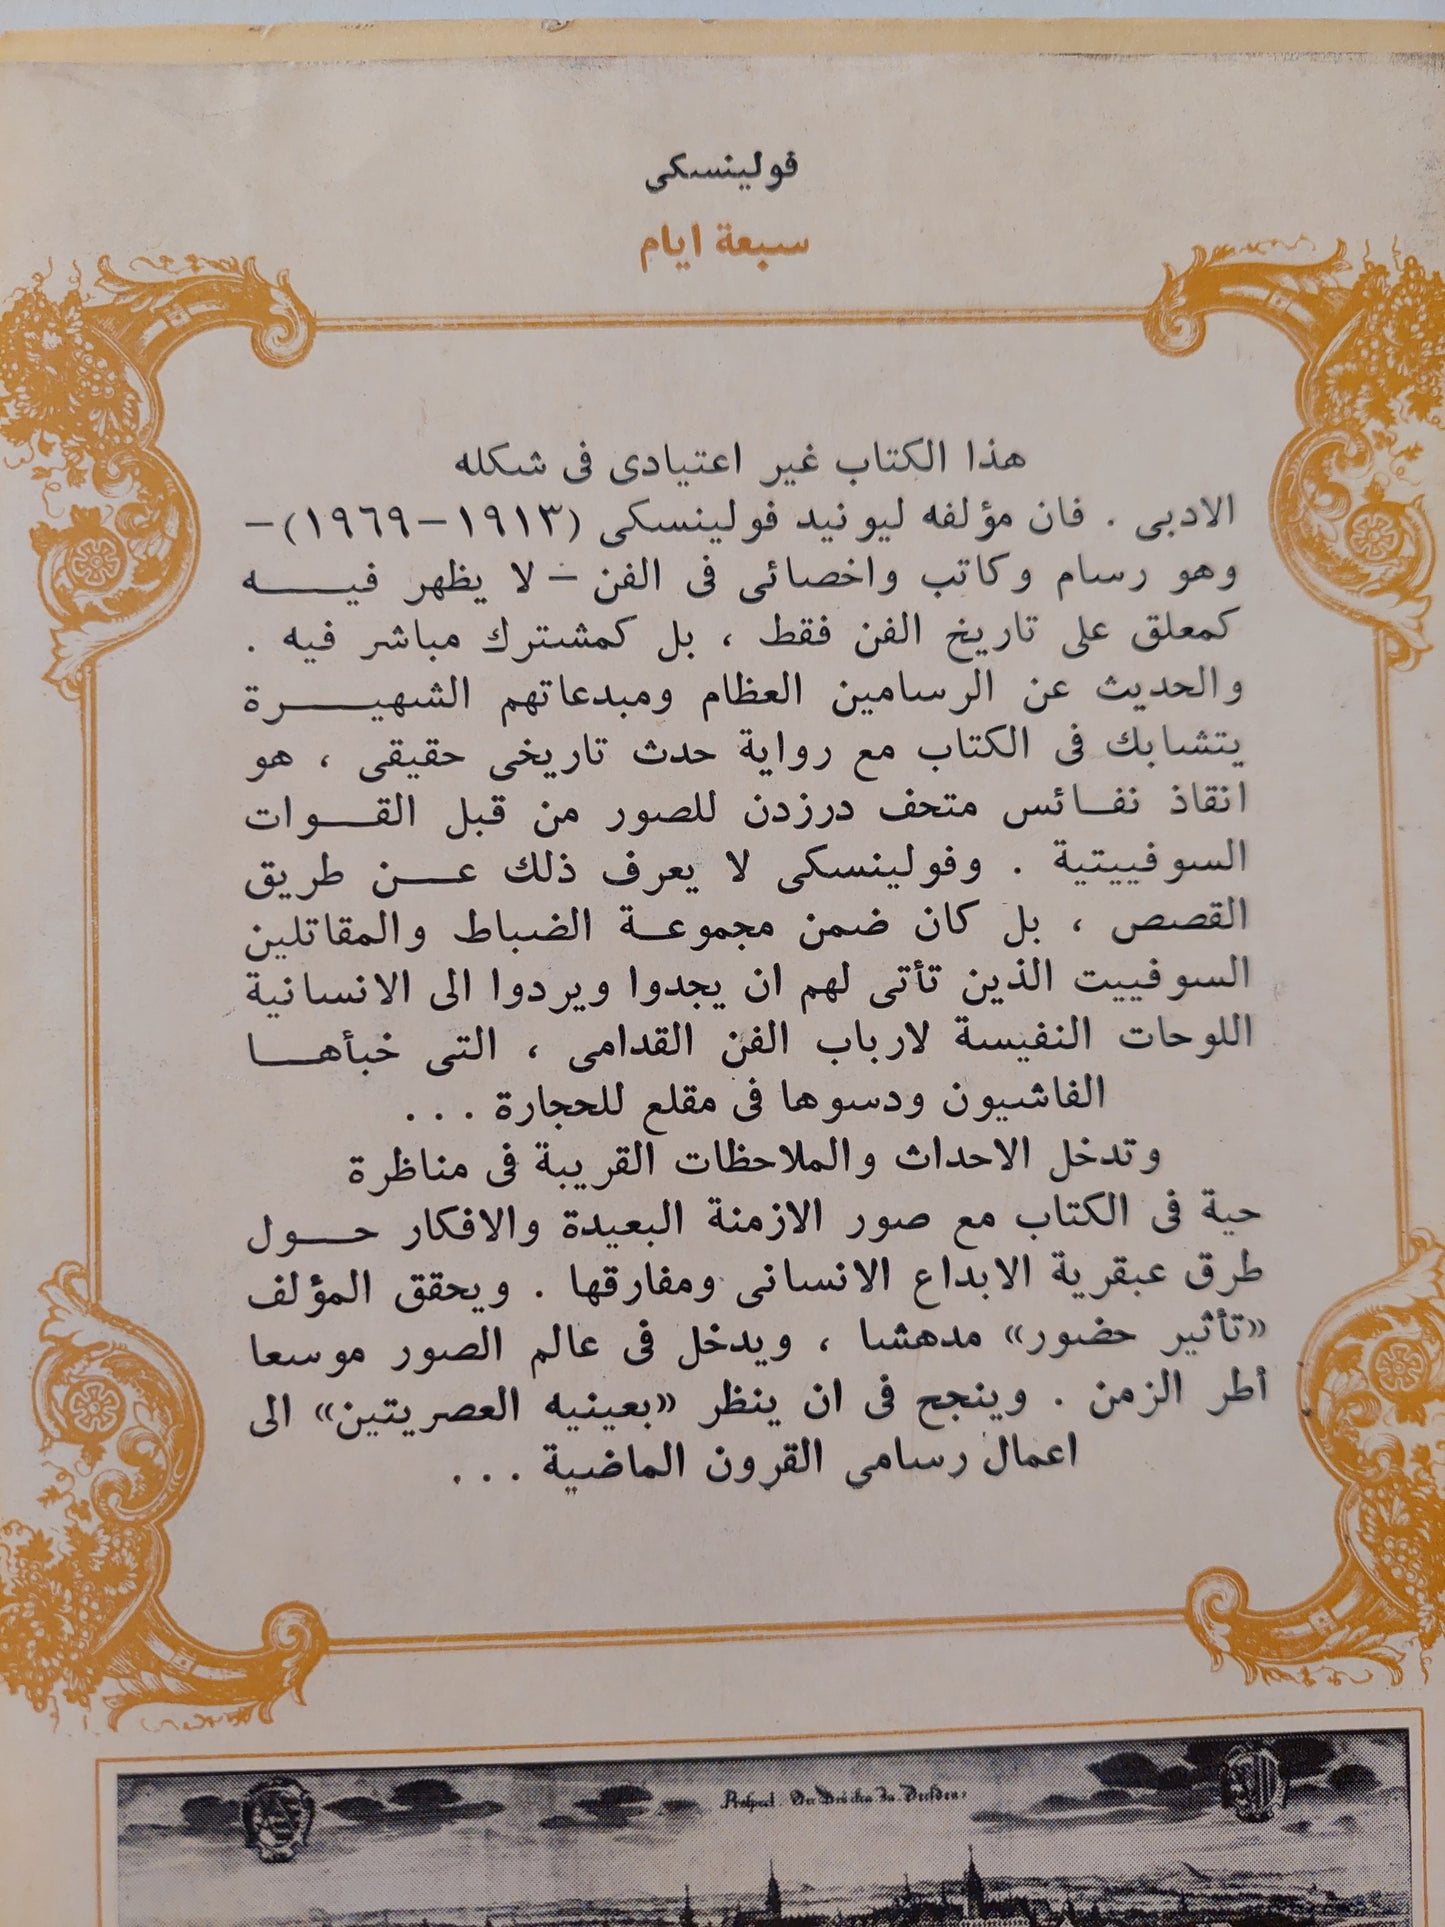 فولينسكى
سبعة ايام
هذا الكتاب غير اعتيادى فى شكله
الادبى . فان مؤلفه ليونيد فولينسكى (١٩١٣–١٩٦٩)–
وهو رسام وكاتب واخصائى فى الفن – لا يظهر فيـــه
كمعلق على تاريخ الفن فقط ، بل كمشترك مباشر فيه .
والحديث عن الرسامين العظام ومبدعاتهم الشهيـــرة
يتشابك فى الكتاب مع رواية حدث تاريخى حقيقى ، هو
انقاذ نفـائس متحف درزدن للصور من قبل القـــوات
السوفييتية . وفولينسكى لا يعرف ذلك عـــن طريق
القصص ، بل كان ضمن مجموعـة الضباط والمقاتلين
السوفييت الذين تأتى لهم ان يجدوا ويردوا الى الانسانية
اللوحات النفيسة لارباب الفن القدامى ، التى خبأهـــا
الفاشيون ودسوها فى مقلع للحجارة . . .
وتدخل الاحداث والملاحظات القريبة فى مناظرة
حية فى الكتاب مع صور الازمنة البعيدة والافكار حـــول
طرق عبقرية الابداع الانسانى ومفارقها . ويحقق المؤلف
«تأثير حضور» مدهشا ، ويدخل فى عالم الصور موسعا
أطر الزمن . وينجح فى ان ينظر «بعينيه العصريتين» الى
اعمال رسامى القرون الماضية . . .